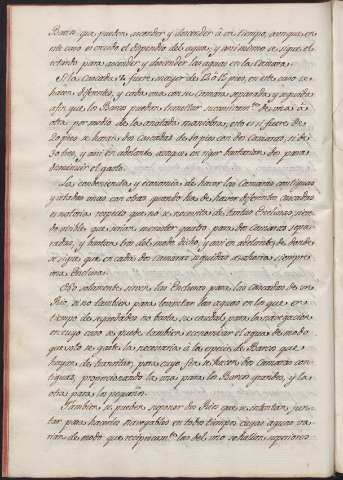 Barcos que pueden ascender y descender á un tiempo, aunque en
este caso es crecido el dispendio del agua, y asi mismo se sigue el
retardo para ascender y descender las aguas en la camara.
Si la Cascada fuere mayor de 12 ó 15 pies, en este caso se
hacen diferentes, y cada una con su Camara separada y
afin que los Barcos puedan transitar sucesivam.te de una á
otra por medio de las anotadas maniobras, esto es si fuere de
20 pies se harán dos Cascadas de 10 pies con dos Camaras, si de
30 tres, y asi en adelante aunque en rigor bastarian dos para
disminuir el gasto.
La conveniencia y economia de hacer las Camaras contiguas
y unidas unas con otras quando hai de haver diferentes Cascadas
es notoria respecto que no se necesita de tantas Esclusas, siendo
visible que serian menester quatro para dos Camaras sepa-
radas, y bastan tres del modo dicho, y asi en adelante de donde
se sigue que en cada dos Camaras seguidas se ahorra siempre
una Esclusa.
No solamente sirven las Esclusas para las Cascadas de un
Rio, si no tambien para levantar las aguas en lo que era
tiempo de no basta su caudal para la navegacion
en cuyo caso se puede tambien economizar el agua de modo
que solo se gaste la necesaria á la especie de Barcos que
hayan de transitar, para cuyo fin se hacen dos Camaras con-
tiguas, proporcionando la una para los Barcos grandes, y la
otra para los pequeños.
Tambien se pueden suponer dos Rios que se intentan jun-
tar para hacerlos navegables en todo tiempo, cuyas aguas va-
rian de modo que reciprocam.te las del uno se hallan superiores